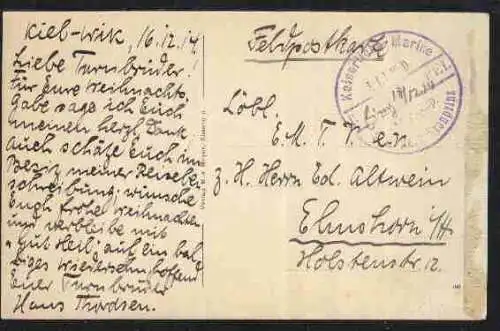 Kiel-Wik, 16.12.14
Liebe Turnbrüder!
Für Eure Weihnachts
Gabe sage ich Euch
meinen herzl. Dank
Auch schätze Euch im
Besitz meiner Reisebe
schreibung; wünsche
Euch frohe Weihnachten
und verbleibe mit
"Gut Heil", auf ein bal
diges Wiedersehn hoffend
Euer Turnbruder
Hans Thordsen.
Feldpostkarte
Kaiserliche Marine
Löbl.
E. M. T. V.
z. H. Herrn Ed. Altwein
Elmshorn i/H.
Holstenstr.